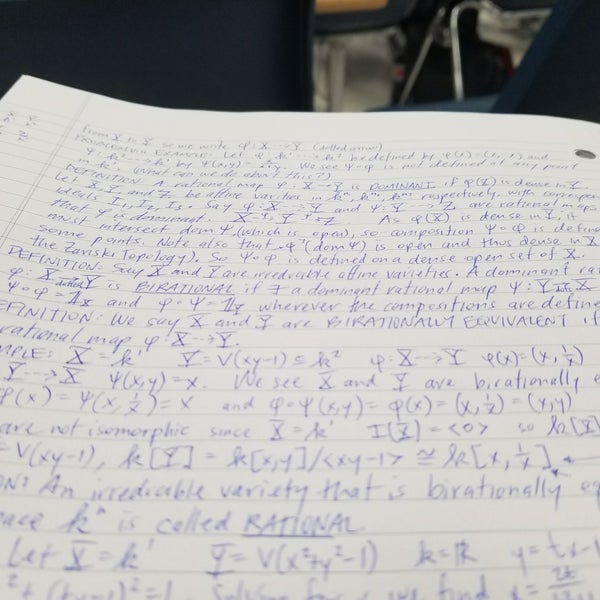 from X to Y so we write φ: X --> Y (dotted arrow)
PROBLEMATIC EXAMPLE: Let φ: k' --> k² be defined by φ(x) = and
ψ: k² --> k' by ψ(x,y) = We see ψ∘φ is not defined at any point
in k'. (What can we do about this?)
DEFINITION: A rational map φ: X --> Y is DOMINANT if φ(X) is dense in Y.
Let X, Y, and Z be affine varieties in respectively, with
ideals I₁, I₂, I₃. Say φ: X --> Y and ψ: Y --> Z are rational maps
that φ is dominant. X --> Y --> Z As φ(X) is dense in Y, it
must intersect dom ψ (which is open), so composition ψ∘φ is define
some points. Note also that φ⁻¹(dom ψ) is open and thus dense in X
the Zariski Topology). So ψ∘φ is defined on a dense open set of X.
DEFINITION: Say X and Y are irreducible affine varieties. A dominant rat
φ: X --> Y is BIRATIONAL if ∃ a dominant rational map ψ: Y --> X
ψ∘φ = 𝟙x and φ∘ψ = 𝟙y wherever the compositions are define
EFINITION: We say X and Y are BIRATIONALLY EQUIVALENT if
rational map φ: X --> Y.
MPLE: X = k' Y = V(xy-1) ⊆ k² φ: X --> Y φ(x) = (x, 1/x)
Y --> X ψ(x,y) = x. We see X and Y are birationally e
φ(x) = ψ(x, 1/x) = x and φ∘ψ(x,y) = φ(x) = (x, 1/x) = (x,y)
are not isomorphic since X = k' I(X) = <0> so k[X]
= V(xy-1), k[Y] = k[x,y]/<xy-1> ≅ k[x, 1/x]
ON: An irreducible variety that is birationally eq
pace kⁿ is called RATIONAL
Let X = k' Y = V(x²+y²-1) k = ℝ y = tx-1
²+(tx-1)²=1. Solving for x we find x =